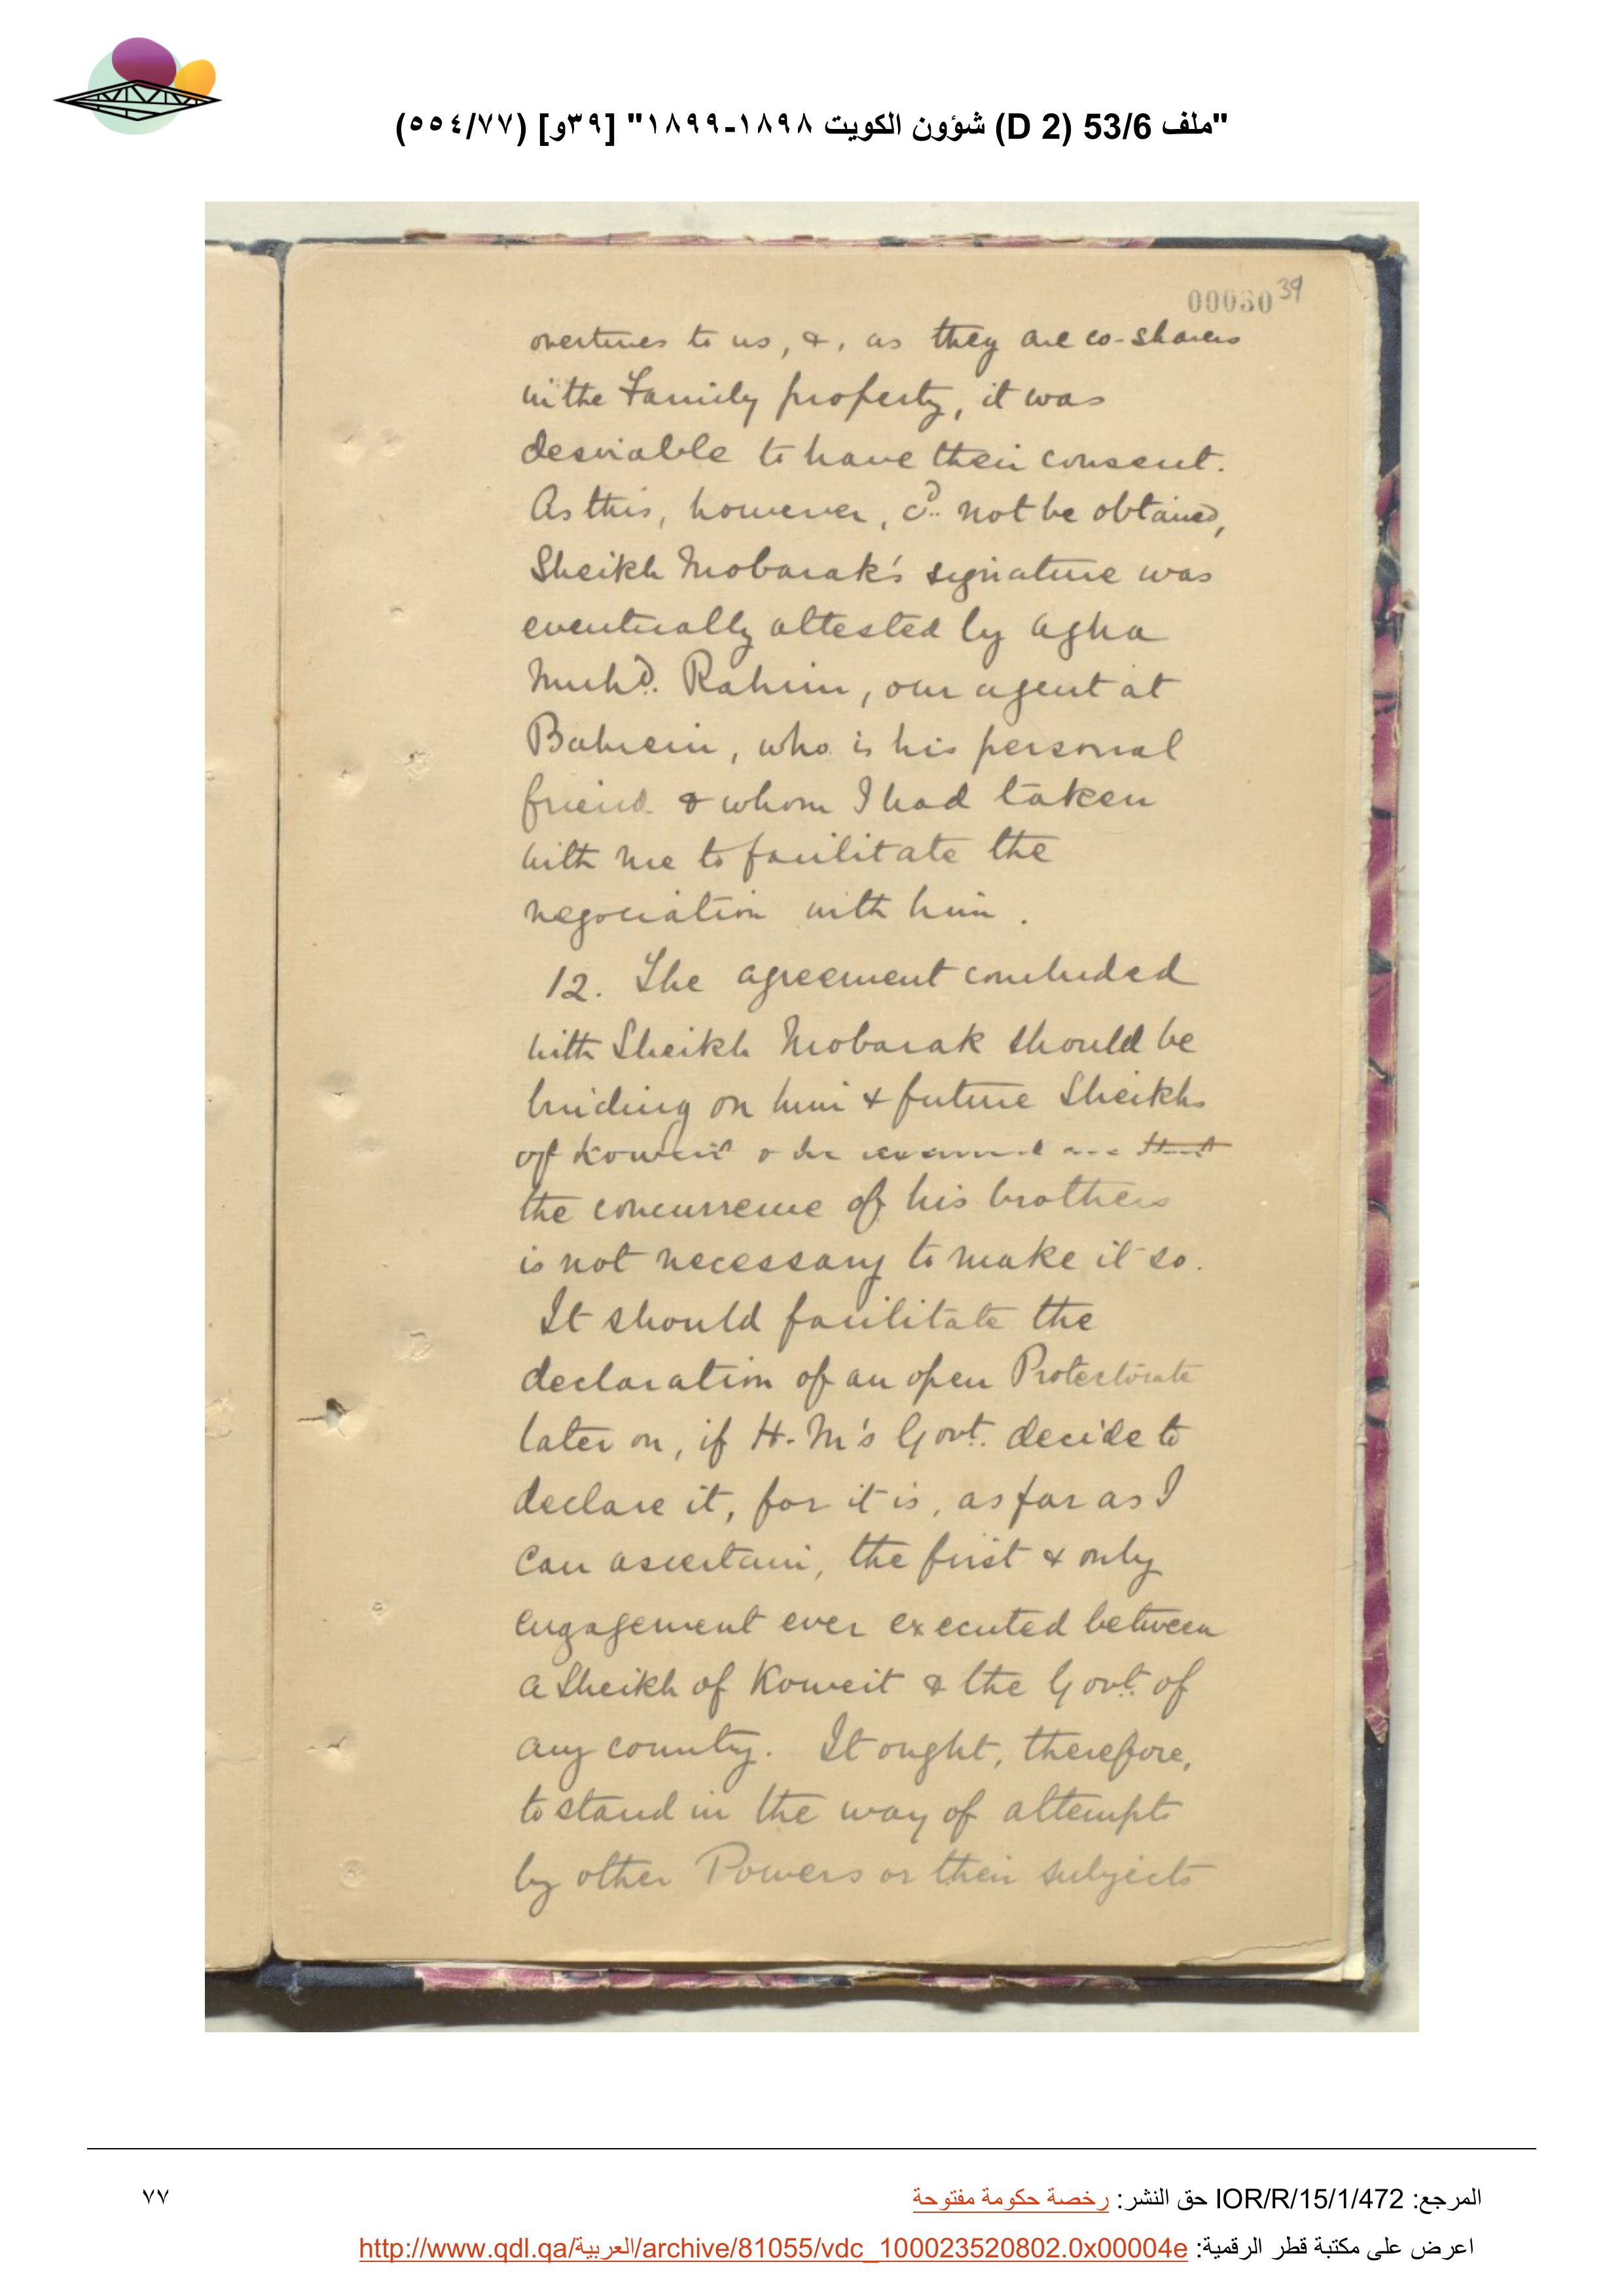 "ملف 53/6 (D 2) شؤون الكويت ١٨٩٨-١٨٩٩" [٣٩و] (٥٥٤/٧٧)
00030 39
overtures to us, &, as they are co-sharers
in the Family property, it was
desirable to have their consent.
As this, however, cd. not be obtained,
Sheikh Mobarak's signature was
eventually attested by Agha
Muhd. Rahim, our agent at
Bahrein, who is his personal
friend & whom I had taken
with me to facilitate the
negociation with him.
12. The agreement concluded
with Sheikh Mobarak should be
binding on him & future Sheikhs
of Koweit & he
the concurrence of his brothers
is not necessary to make it so.
It should facilitate the
declaration of an open Protectorate
later on, if H.M's Govt. decide to
declare it, for it is, as far as I
can ascertain, the first & only
engagement ever executed between
a Sheikh of Koweit & the Govt. of
any country. It ought, therefore,
to stand in the way of attempts
by other Powers or their subjects
المرجع: IOR/R/15/1/472 حق النشر: رخصة حكومة مفتوحة
٧٧
اعرض على مكتبة قطر الرقمية: http://www.qdl.qa/العربية/archive/81055/vdc_100023520802.0x00004e